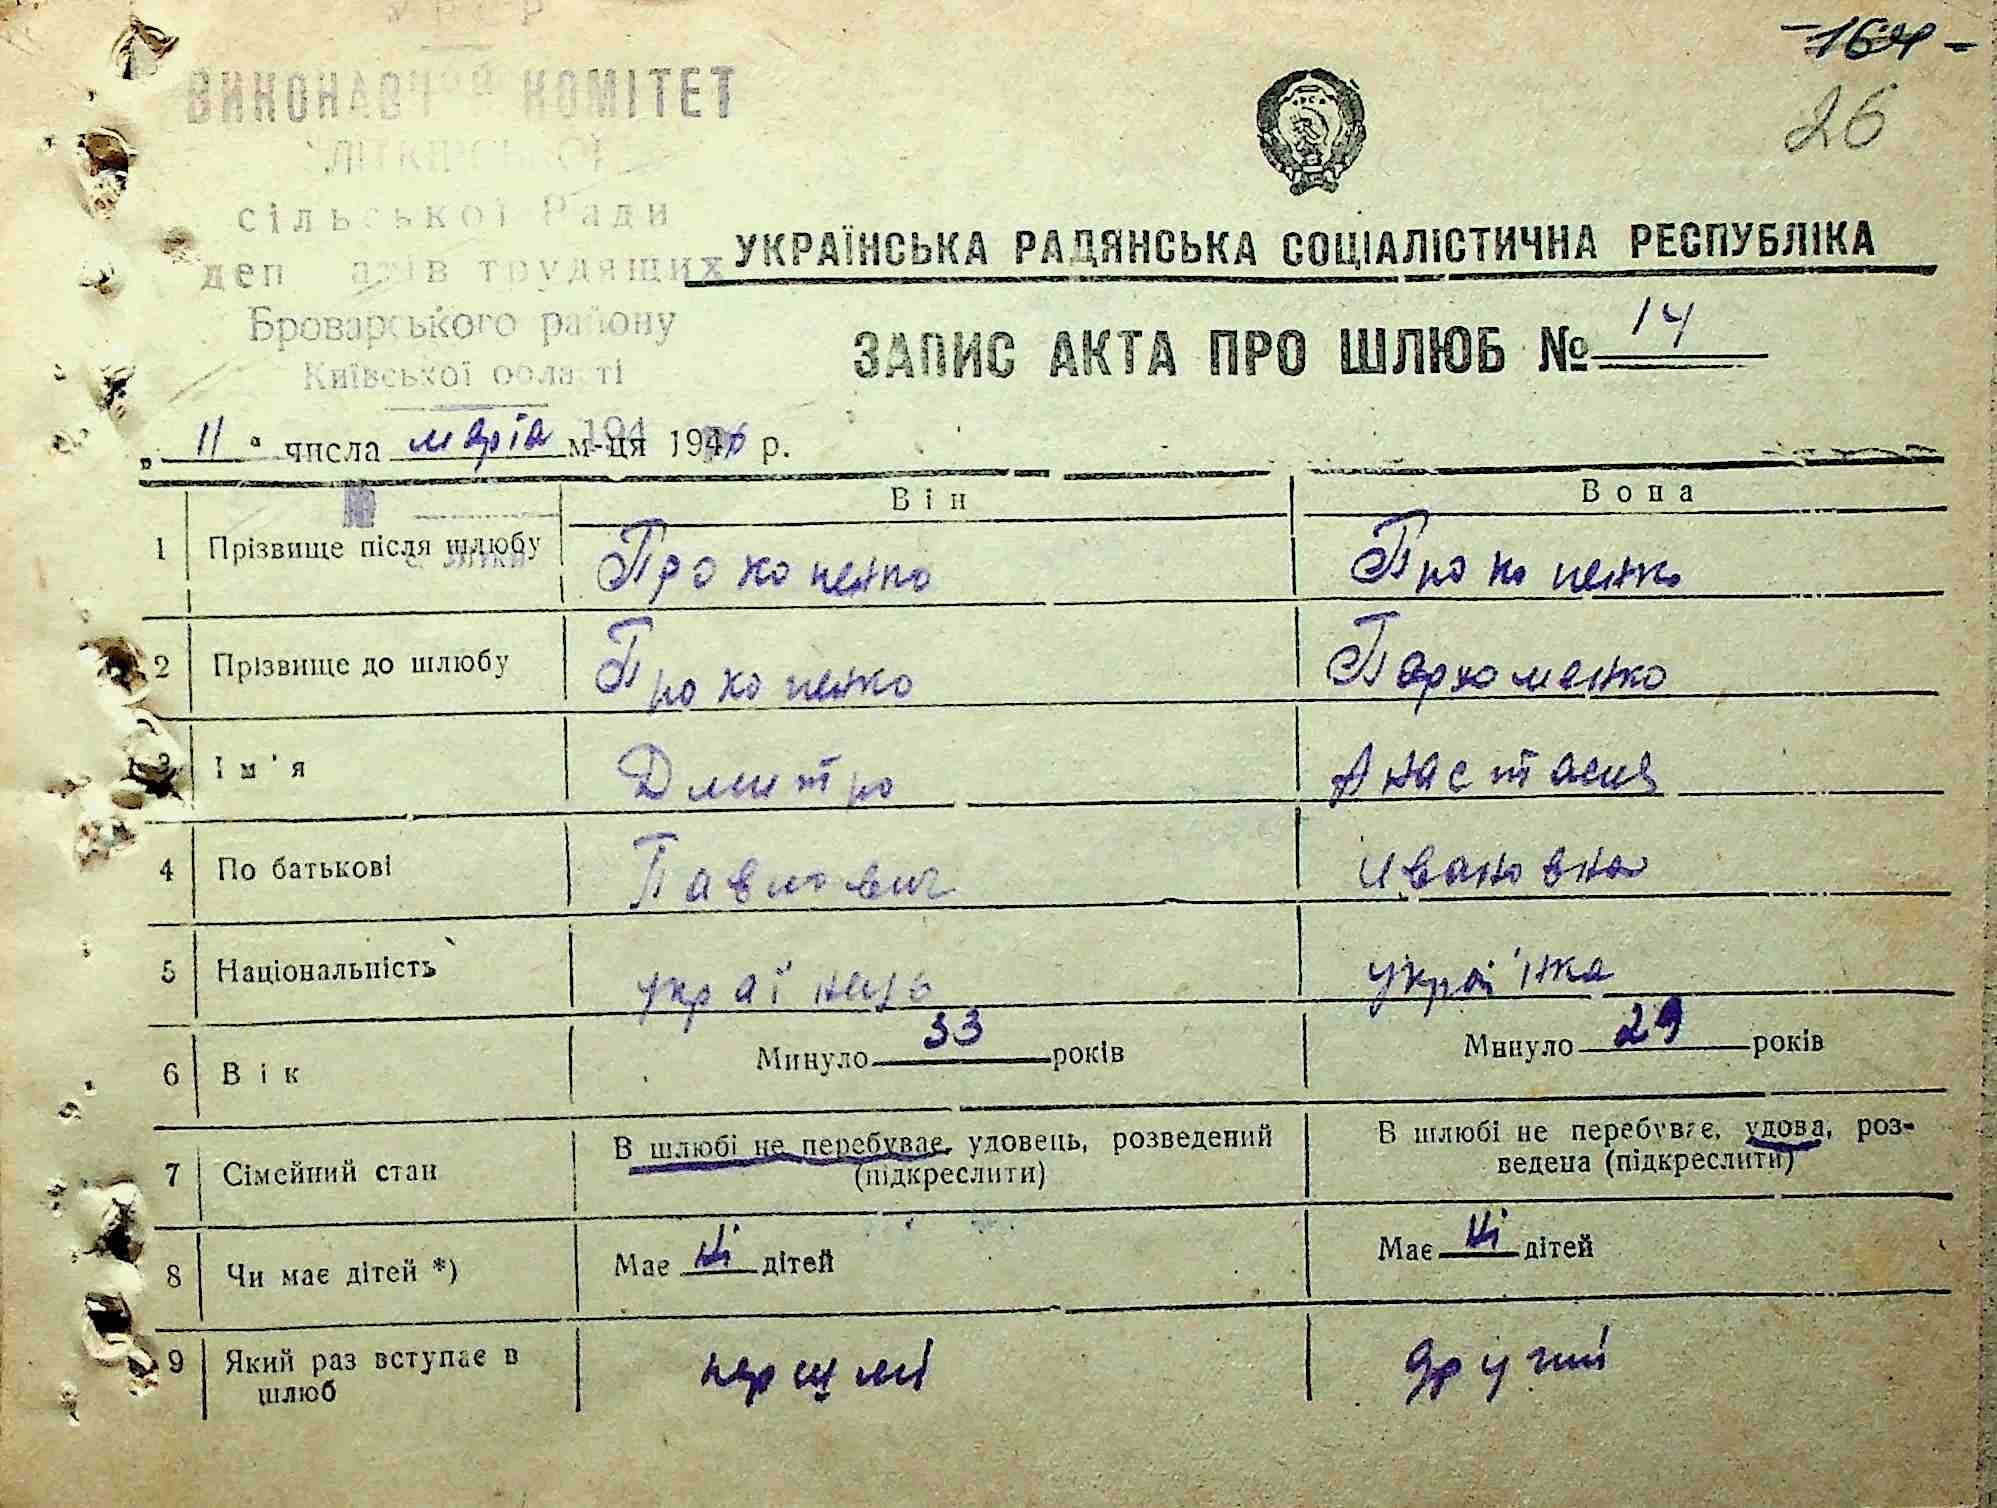 УРСР
ВИКОНАВЧИЙ КОМІТЕТ
ЛІТКІВСЬКОЇ
сільської Ради
деп атів трудящих
Броварського району
Київської області
194
с. Літки
-164-
26
УКРАЇНСЬКА РАДЯНСЬКА СОЦІАЛІСТИЧНА РЕСПУБЛІКА
ЗАПИС АКТА ПРО ШЛЮБ № 14
„ 11 " числа марта м-ця 194 р.
Він Вона
1 Прізвище після шлюбу Прокопенко Прокопенко
2 Прізвище до шлюбу Прокопенко Пархоменко
3 Ім'я Дмитро Анастасия
4 По батькові Павлович Ивановна
5 Національність українець українка
6 Вік Минуло 33 років Минуло 29 років
7 Сімейний стан В шлюбі не перебуває, удовець, розведений (підкреслити) В шлюбі не перебуває, удова, роз-
ведена (підкреслити)
8 Чи має дітей *) Має ні дітей Має ні дітей
9 Який раз вступає в
шлюб перший другий